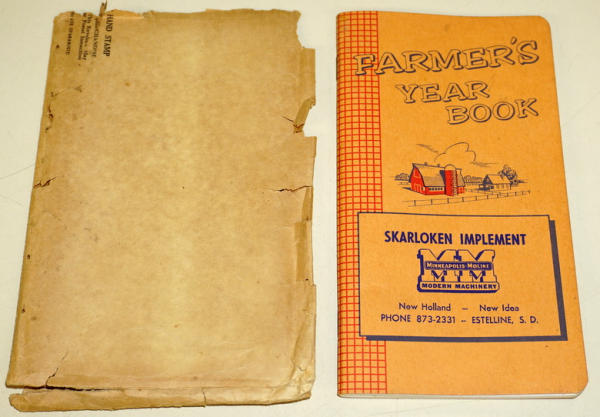 HAND STAMP
FARMER'S
YEAR
BOOK
SKARLOKEN IMPLEMENT
MM
MINNEAPOLIS-MOLINE
MODERN MACHINERY
New Holland — New Idea
PHONE 873-2331 -- ESTELLINE, S. D.